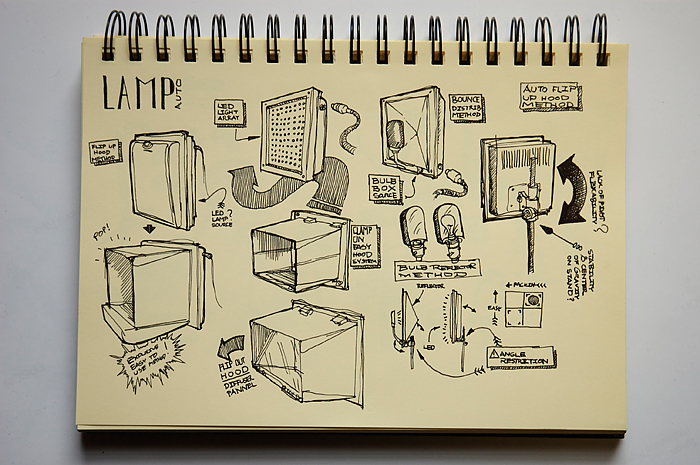 LAMP
AUTO
FLIP UP
HOOD
METHOD
LED
LIGHT
ARRAY
BOUNCE
DISTRIB
METHOD
AUTO FLIP
UP HOOD
METHOD
LED?
LAMP
SOURCE
BULB
BOX
POP!
CLAMP
ON
EASY
HOOD
SYSTEM
BULB REFLECTOR
METHOD
FLEXABILITY
STABILITY
& CENTER
OF GRAVITY
ON STAND?
EXPLOSIVE
EASY
USE METHOD!
FLIP OUT
HOOD
DIFFUSER
REFLECTOR
LED
EASE
ANGLE
RESTRICTION